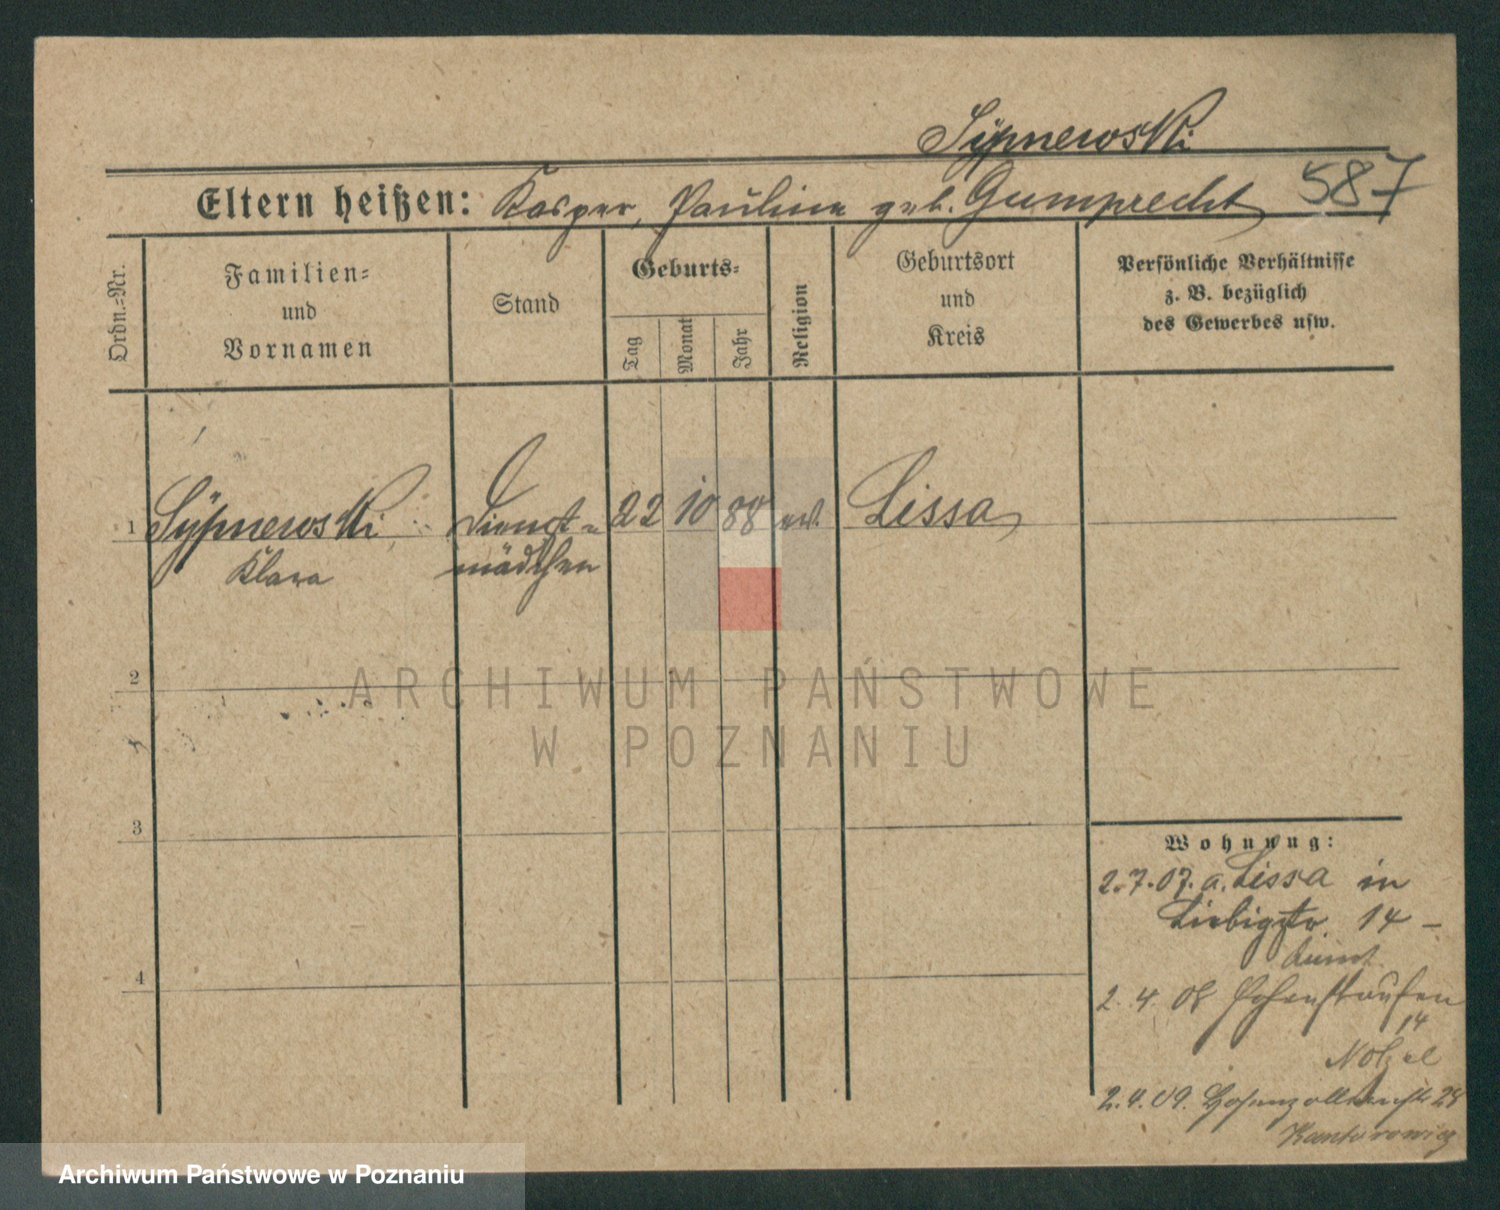 Sÿpnewski
Eltern heißen: Kasper, Pauline geb. Gumprecht 587
Ordn.=Nr.
Familien=
und
Vornamen
Stand
Geburts=
Tag
Monat
Jahr
Religion
Geburtsort
und
Kreis
Persönliche Verhältnisse
z. B. bezüglich
des Gewerbes usw.
1 Sÿpnewski Dienst= 22 10 88 ev. Lissa
Klara mädchen
2
ARCHIWUM PAŃSTWOWE
W POZNANIU
3
Wohnung:
2.7.07. a. Lissa in
Liebigstr. 14 –
dienst
4
2. 4. 08 Hohenstaufen
14
2.4.09. Hohenzollernstr 28
Kantorowicz
Archiwum Państwowe w Poznaniu